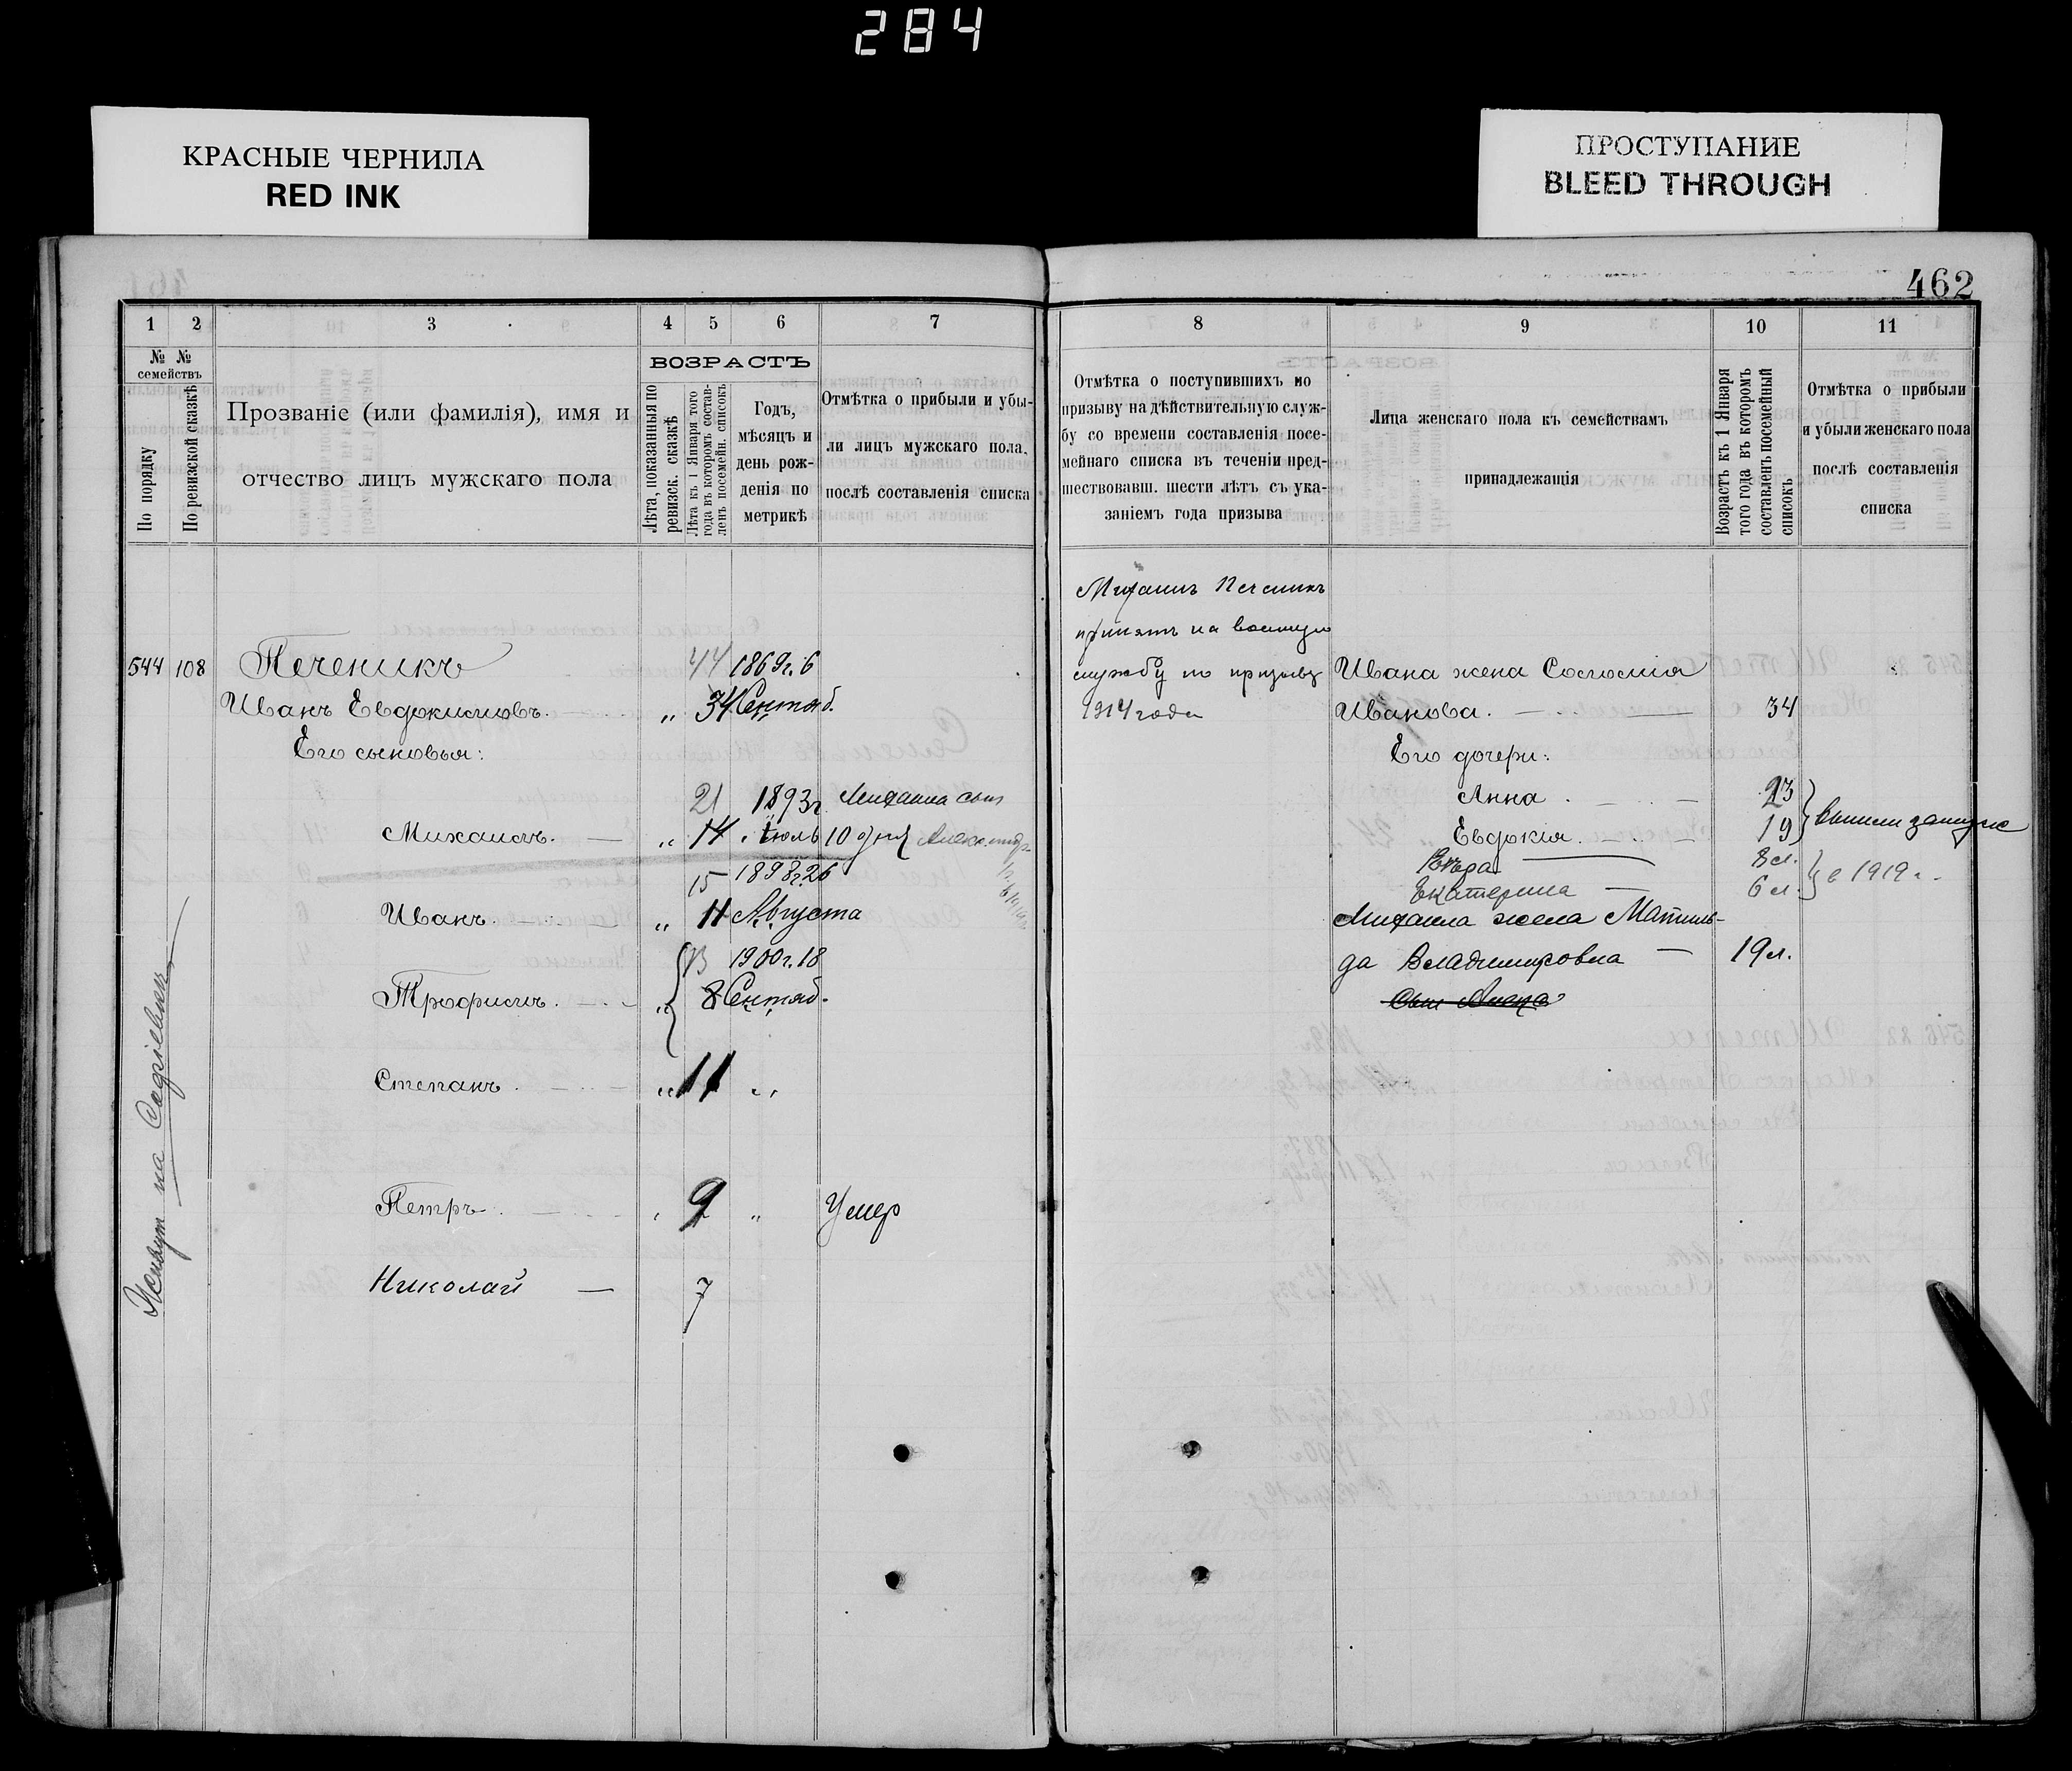 284
КРАСНЫЕ ЧЕРНИЛА
RED INK
ПРОСТУПАНИЕ
BLEED THROUGH
462
1 2 3 4 5 6 7
№ № семействъ
По порядку
По ревизской сказкѣ
Прозваніе (или фамилія), имя и
отчество лицъ мужскаго пола
ВОЗРАСТЪ
Лѣта, показанныя по
ревизск. сказкѣ
Лѣта къ 1 Января того
года въ которомъ состав-
ленъ посемейн. списокъ
Годъ,
мѣсяцъ и
день рож-
денія по
метрикѣ
Отмѣтка о прибыли и убы-
ли лицъ мужскаго пола,
послѣ составленія списка
544 108 Печеникъ 44 1869г. 6
Иванъ Евдокимовъ. „ 34 Сентяб.
Его сыновья:
21 1893г. Михаила сын
Михаилъ. „ 14 Іюль 10
15 1898г. 26
Иванъ. „ 11 Августа
13 1900г. 18
Трофимъ. „ 8 Сентяб.
Степанъ. „ 11 „
Петръ. „ 9 „ Умер
Николай — 7
Живут на
8 9 10 11
Отмѣтка о поступившихъ по
призыву на дѣйствительную служ-
бу со времени составленія посе-
мейнаго списка въ теченіи пред-
шествовавш. шести лѣтъ съ ука-
заніемъ года призыва
Лица женскаго пола къ семействамъ
принадлежащія
Возрастъ къ 1 Января
того года въ которомъ
составленъ посемейный
списокъ
Отмѣтка о прибыли
и убыли женскаго пола
послѣ составленія
списка
Михаилъ Печеникъ
принятъ на военную
службу по призыву
1914 года
Ивана жена
Иванова. 34
Его дочери:
Анна 23
Евдокія. 19 вышли замуж
Вѣра 8 л.
Екатерина — 6 л. в 1919 г.
Михаила жена Матиль-
да Владимировна — 19 л.